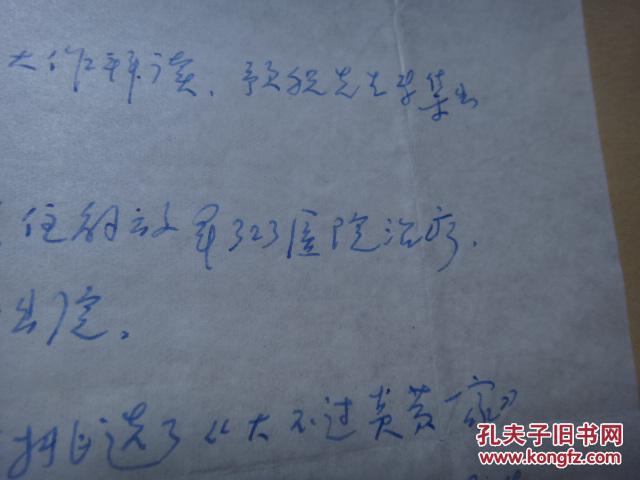 大作拜读，预祝先生集出
住解放军323医院治疗.
出院。
挑选了《大不过黄家》
孔夫子旧书网
www.kongfz.com